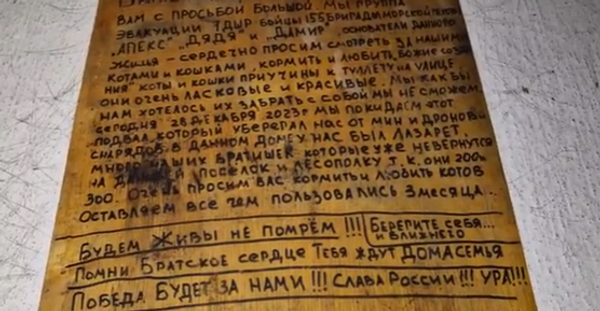 ВАМ С ПРОСЬБОЙ БОЛЬШОЙ. МЫ ГРУППА
ЭВАКУАЦИИ ТДШР БОЙЦЫ 155 БРИГАДЫ МОРСКОЙ ПЕХОТЫ
"АПЕКС" "ДЯДЯ" И "ДАМИР", ОСНОВАТЕЛИ ДАННОГО
ЖИЛЬЯ - СЕРДЕЧНО ПРОСИМ СМОТРЕТЬ ЗА НАШИМИ
КОТАМИ И КОШКАМИ, КОРМИТЬ И ЛЮБИТЬ, БОЖИЕ СОЗДА
НИЯ" КОТЫ И КОШКИ ПРИУЧИНЫ К ТУЛЛЕТУ НА УЛИЦЕ
ОНИ ОЧЕНЬ ЛАСКОВЫЕ И КРАСИВЫЕ. МЫ КАК БЫ
НАМ ХОТЕЛОСЬ ИХ ЗАБРАТЬ С СОБОЙ МЫ НЕ СМОЖЕМ.
СЕГОДНЯ 28 ДЕКАБРЯ 2023г МЫ ПОКИДАЕМ ЭТОТ
ПОДВАЛ КОТОРЫЙ УБЕРЕГАЛ НАС ОТ МИН И ДРОНОВ И
СНАРЯДОВ. В ДАННОМ ДОМЕ У НАС БЫЛ ЛАЗАРЕТ,
МНОГО НАШИХ БРАТИШЕК КОТОРЫЕ УЖЕ НЕВЕРНУТСЯ
НА ПОСЕЛОК И ЛЕСОПОЛКУ Т.К. ОНИ 200е
300. ОЧЕНЬ ПРОСИМ ВАС КОРМИТЬ И ЛЮБИТЬ КОТОВ
ОСТАВЛЯЕМ ВСЕ ЧЕМ ПОЛЬЗОВАЛИСЬ 3 МЕСЯЦА...
БУДЕМ ЖИВЫ НЕ ПОМРЁМ !!! БЕРЕГИТЕ СЕБЯ...
И БЛИЖНЕГО
ПОМНИ БРАТСКОЕ СЕРДЦЕ ТЕБЯ ЖДУТ ДОМА СЕМЬЯ
ПОБЕДА БУДЕТ ЗА НАМИ !!! СЛАВА РОССИИ !!! УРА!!!